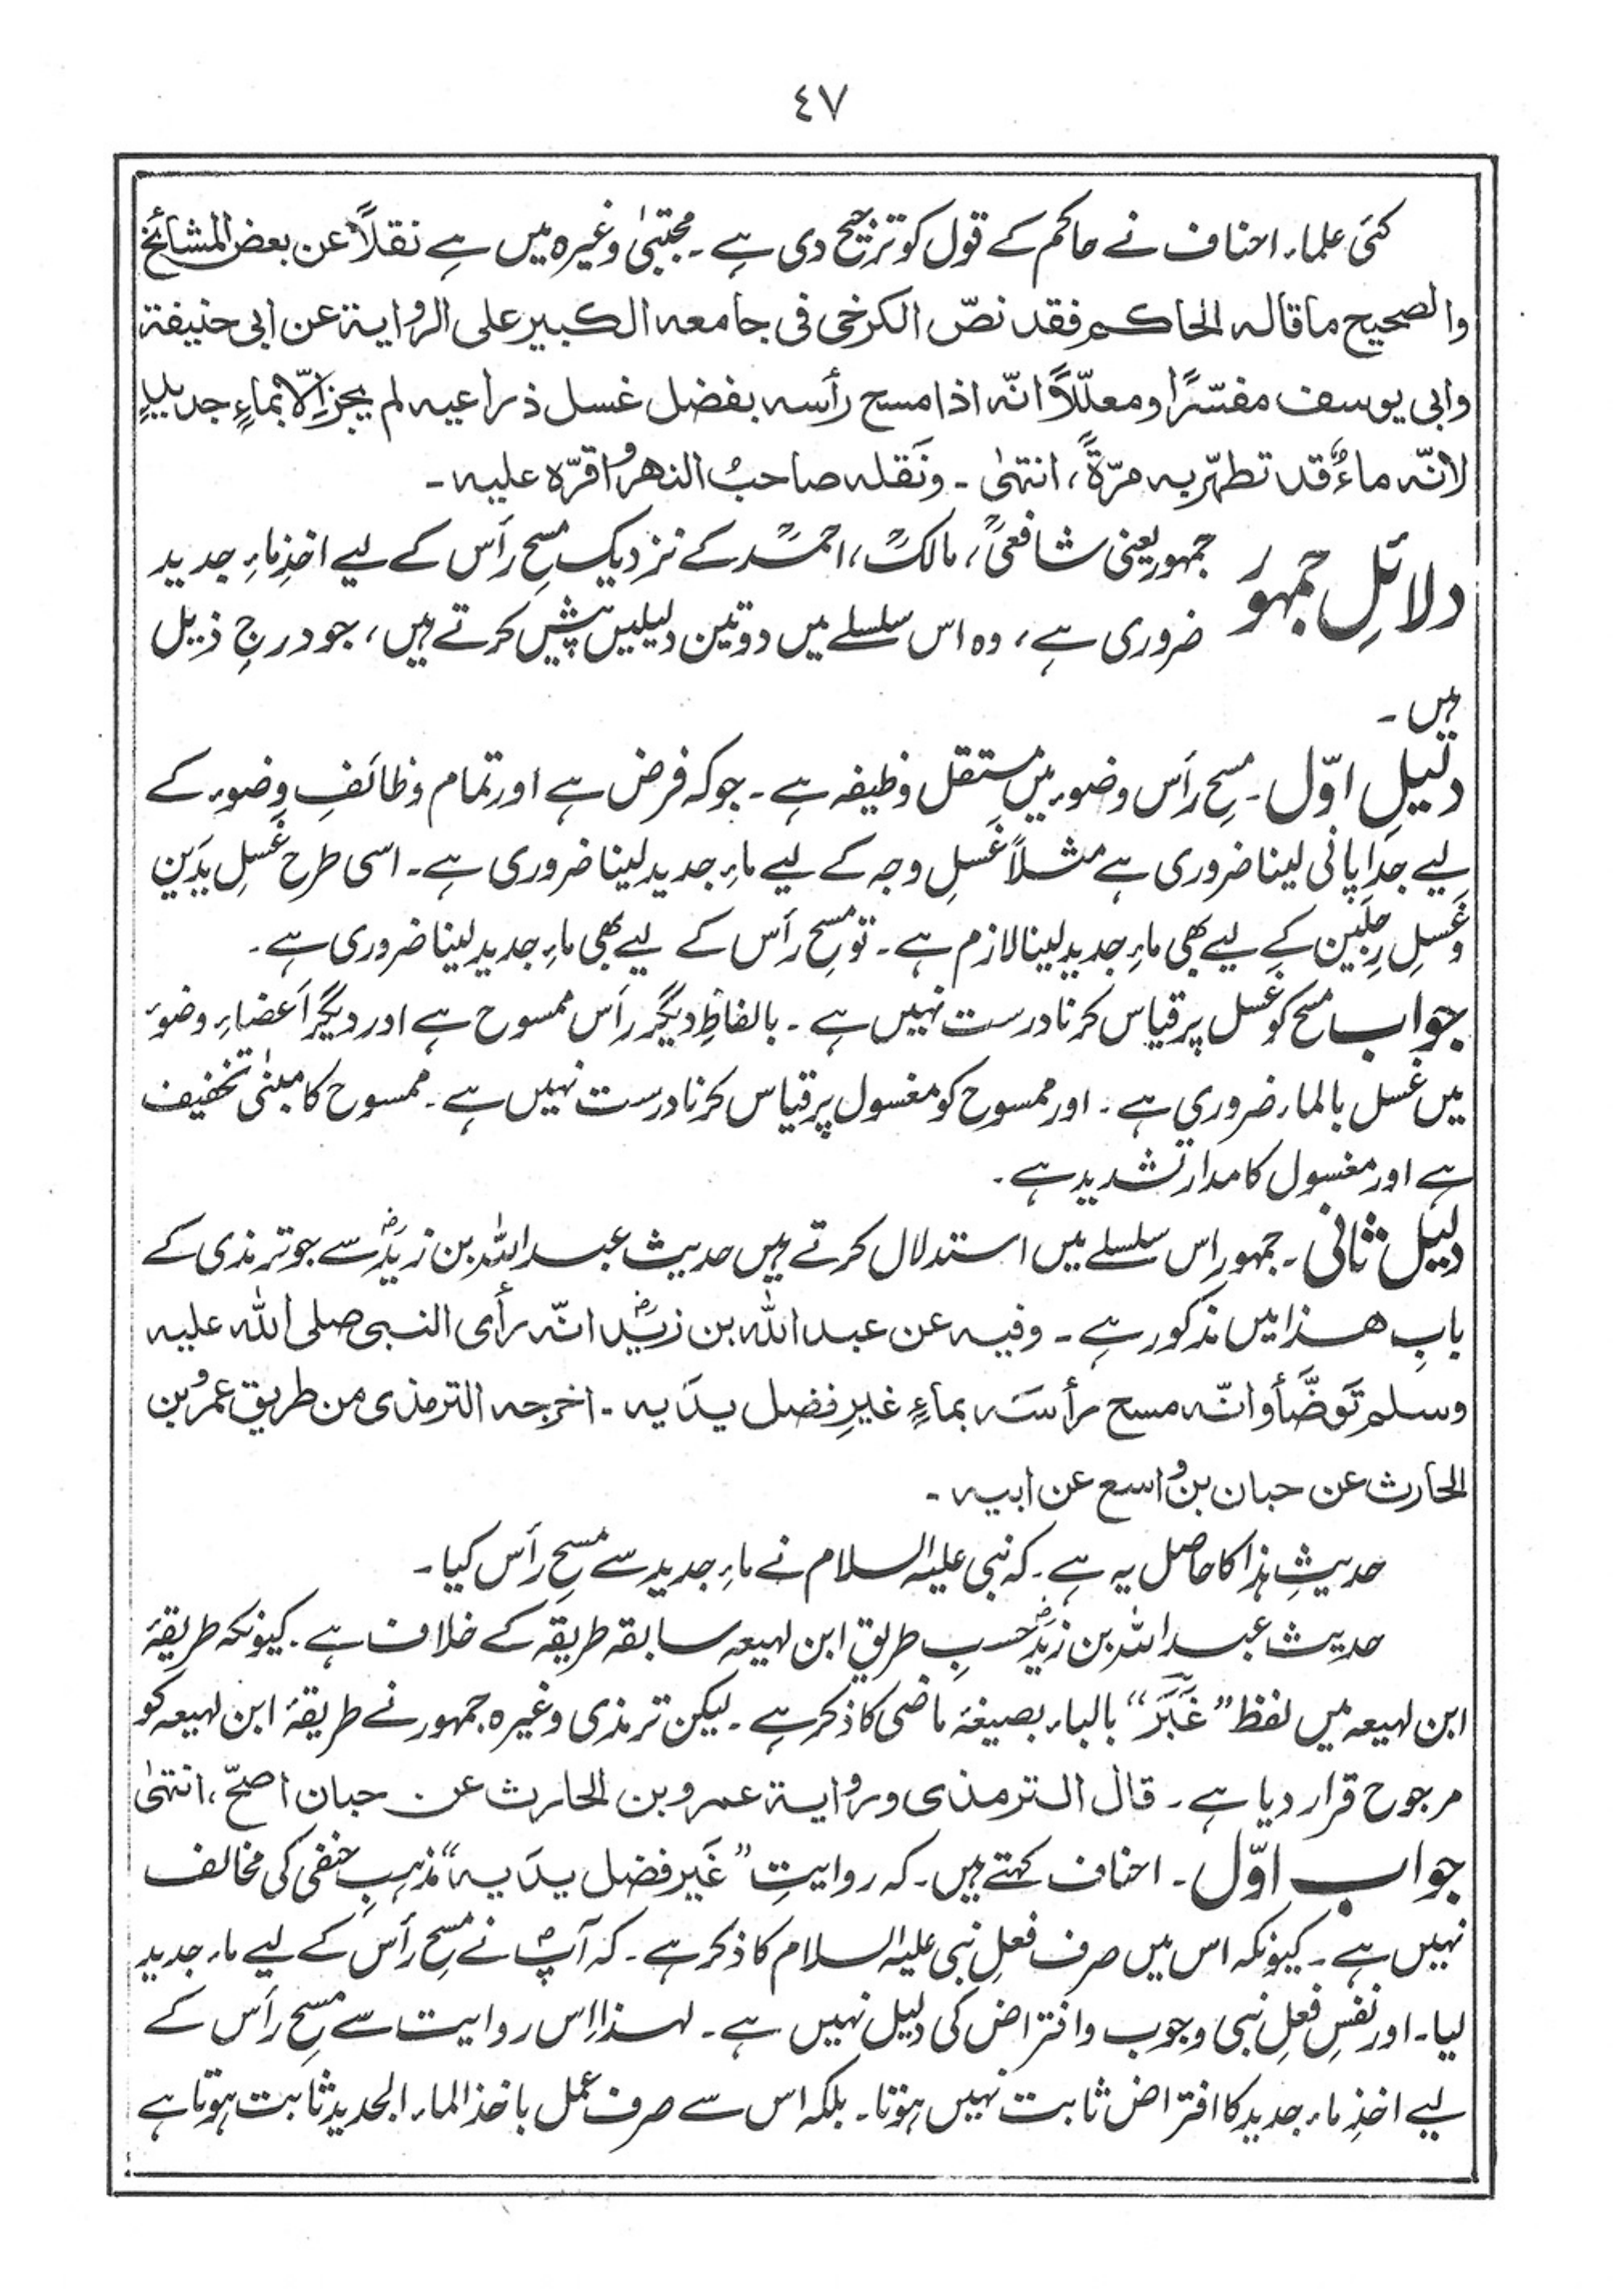 ٤٧
کئی علماء احناف نے حاکم کے قول کو ترجیح دی ہے ۔ مجتبیٰ وغیرہ میں ہے نقلاً عن بعض المشائخ
والصحیح ماقالہ الحاکم فقد نصّ الکرخی فی جامعہ الکبیر علی الروایة عن ابی حنیفة
وابی یوسف مفسّرًا ومعلّلاً انّہ اذا مسح رأسہ بفضل غسل ذراعیہ لم یجز الّا بماءٍ جدیدٍ
لانّہ ماءٌ قد تطھّر بہ مرّةً، انتھیٰ ۔ ونَقلہ صاحبُ النھر واقرّہ علیہ ۔
دلائلِ جمہور جمہور یعنی شافعیؒ، مالکؒ، احمدؒ کے نزدیک مسحِ رأس کے لیے اخذِ ماءِ جدید
ضروری ہے، وہ اس سلسلے میں دو تین دلیلیں پیش کرتے ہیں، جو درجِ ذیل
ہیں ۔
دلیلِ اوّل ۔ مسحِ رأس وضوء میں مستقل وظیفہ ہے ۔ جو کہ فرض ہے اور تمام وظائفِ وضوء کے
لیے جدا پانی لینا ضروری ہے مثلاً غَسلِ وجہ کے لیے ماءِ جدید لینا ضروری ہے ۔ اسی طرح غَسلِ یدَین
وغَسلِ رِجلَین کے لیے بھی ماءِ جدید لینا لازم ہے ۔ تو مسحِ رأس کے لیے بھی ماءِ جدید لینا ضروری ہے ۔
جواب مسح کو غسل پر قیاس کرنا درست نہیں ہے ۔ بالفاظِ دیگر رأس ممسوح ہے اور دیگر اَعضاءِ وضوء
میں غسل بالماء ضروری ہے ۔ اور ممسوح کو مغسول پر قیاس کرنا درست نہیں ہے ۔ ممسوح کا مبنیٰ تخفیف
ہے اور مغسول کا مدار تشدید ہے ۔
دلیل ثانی ۔ جمہور اِس سلسلے میں استدلال کرتے ہیں حدیث عبداللہ بن زیدؓ سے جو ترمذی کے
بابِ ھذا میں مذکور ہے ۔ وفیہ عن عبداللہ بن زیدؓ انّہ رأی النبی صلی اللہ علیہ
وسلم تَوَضَّأ وانّہ مسح رأسَہ بماءٍ غیرِ فضل یدَیہ ۔ اخرجہ الترمذی من طریق عمرو بن
الحارث عن حبان بن واسع عن ابیہ ۔
حدیثِ ہذا کا حاصل یہ ہے ۔ کہ نبی علیہ السلام نے ماءِ جدید سے مسحِ رأس کیا ۔
حدیث عبداللہ بن زیدؓ حسبِ طریق ابن لہیعہ سابقہ طریقہ کے خلاف ہے ۔ کیونکہ طریقۂ
ابن لہیعہ میں لفظ ”غَبَّرَ“ بالباء بصیغۂ ماضی کا ذکر ہے ۔ لیکن ترمذی وغیرہ جمہور نے طریقۂ ابن لہیعہ کو
مرجوح قرار دیا ہے ۔ قال الترمذی وروایة عمرو بن الحارث عن حبان اصحّ، انتھیٰ
جواب اوّل ۔ احناف کہتے ہیں ۔ کہ روایتِ ”غَیر فضل یدَیہ“ مذہبِ حنفی کی مخالف
نہیں ہے ۔ کیونکہ اس میں صرف فعلِ نبی علیہ السلام کا ذکر ہے ۔ کہ آپؐ نے مسحِ رأس کے لیے ماء جدید
لیا ۔ اور نفسِ فعلِ نبی وجوب وافتراض کی دلیل نہیں ہے ۔ لہٰذا اِس روایت سے مسحِ رأس کے
لیے اخذِ ماء جدید کا افتراض ثابت نہیں ہوتا ۔ بلکہ اس سے صرف عمل باخذ الماء الجدید ثابت ہوتا ہے